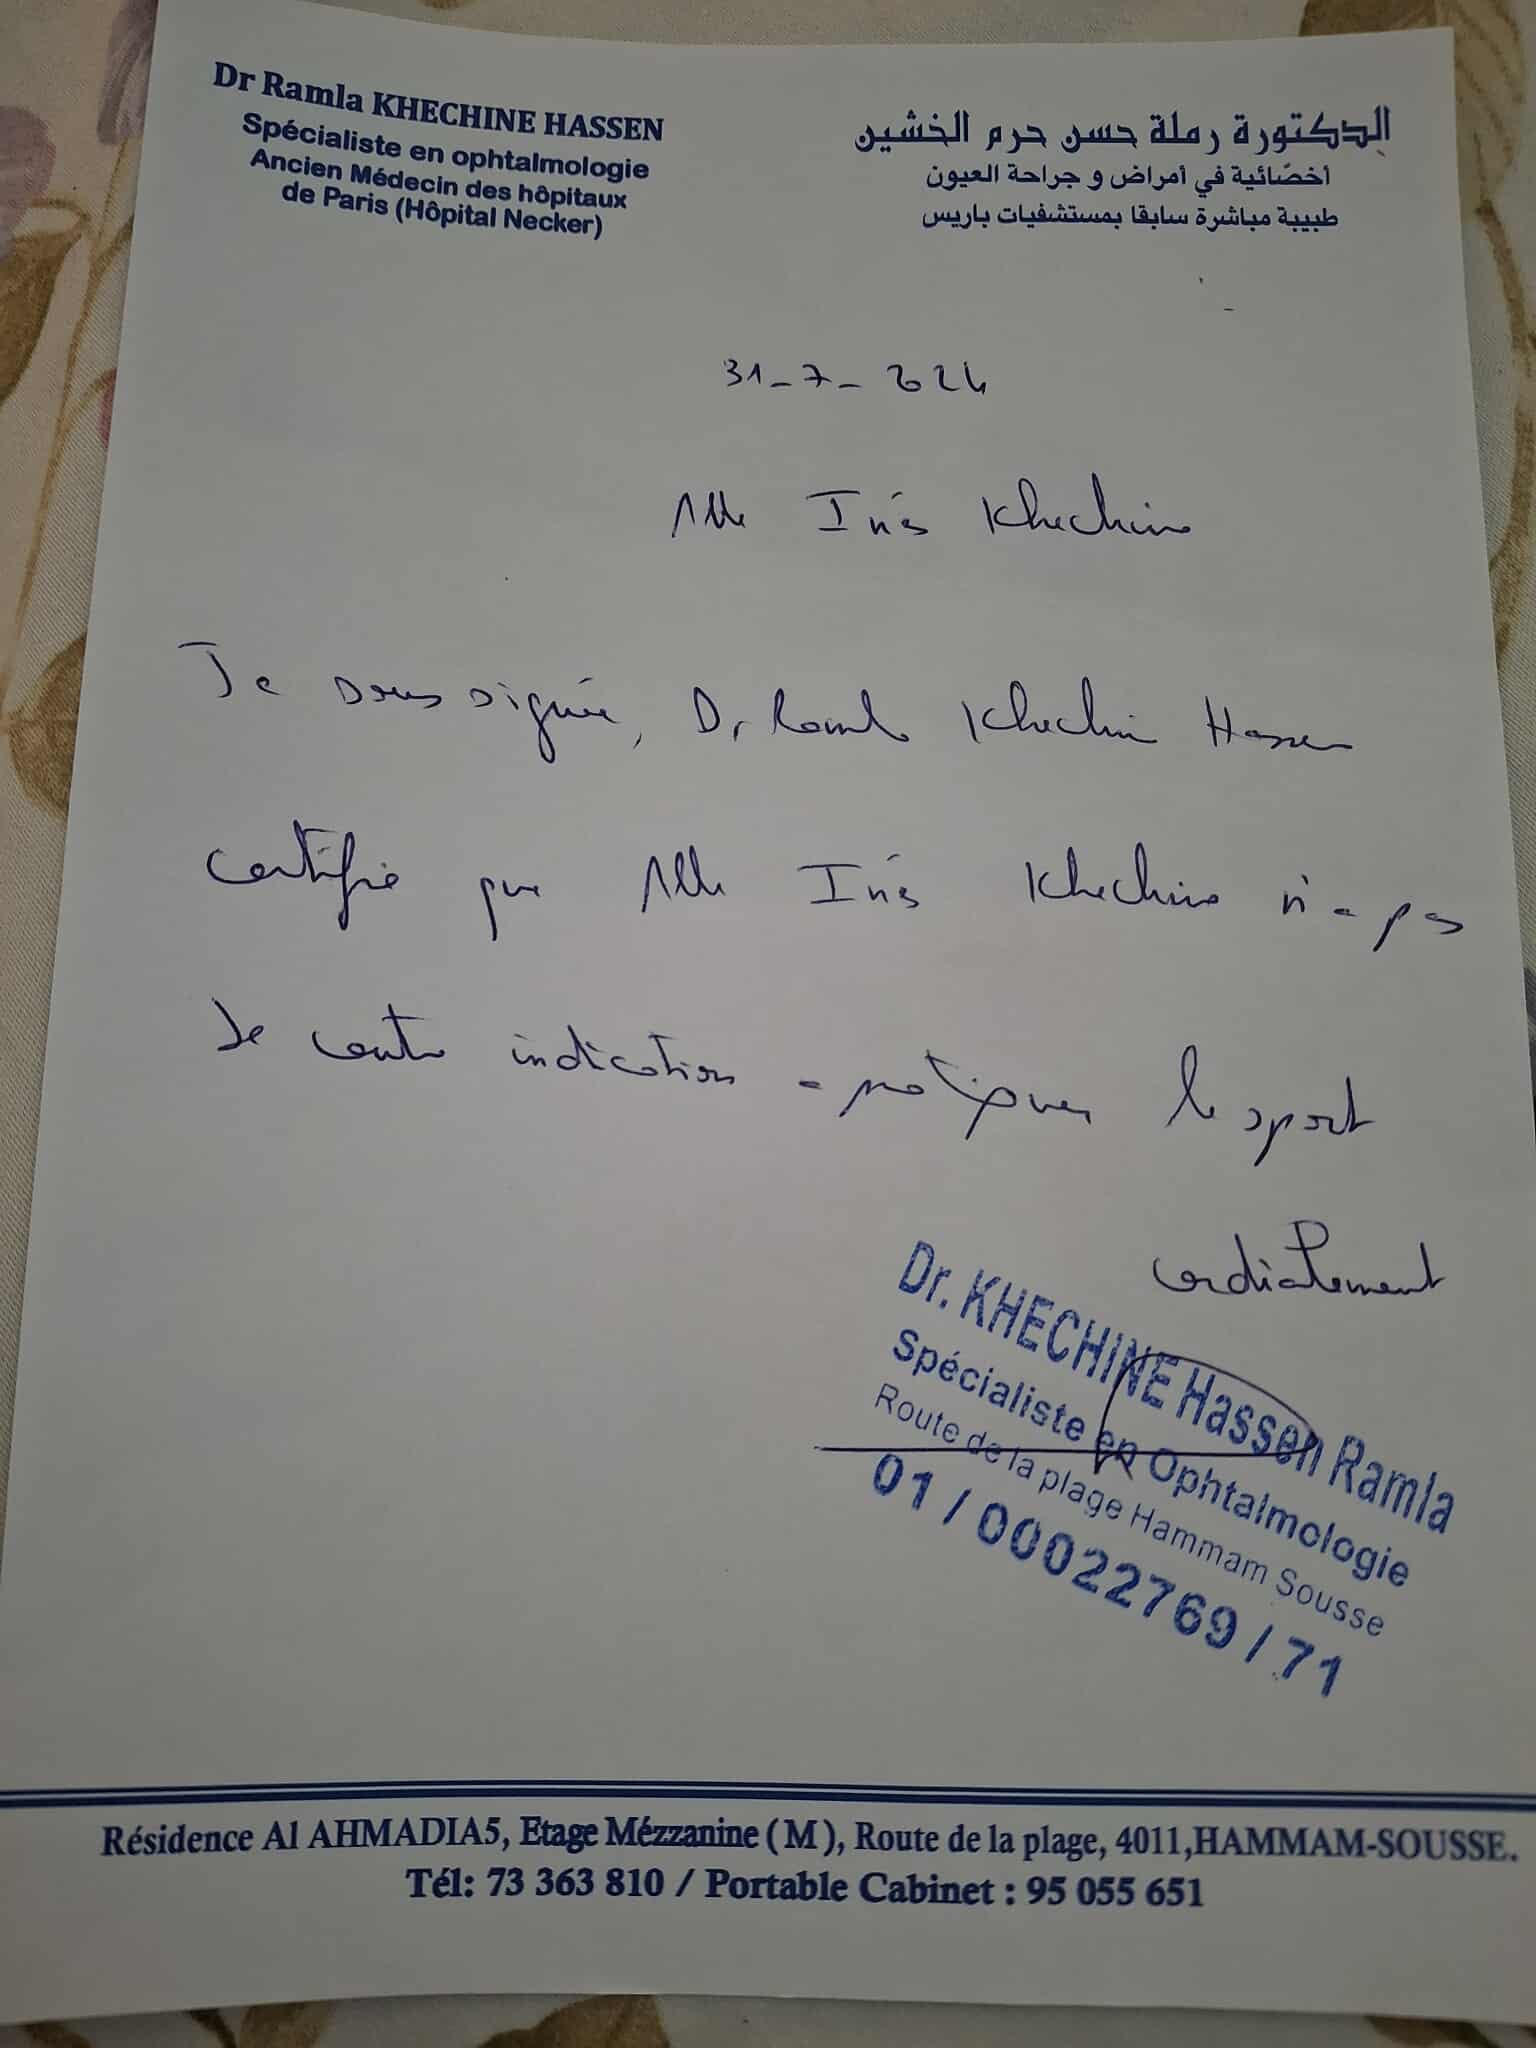 Dr Ramla KHECHINE HASSEN
Spécialiste en ophtalmologie
Ancien Médecin des hôpitaux
de Paris (Hôpital Necker)
الدكتورة رملة حسن حرم الخشين
أخصّائية في أمراض و جراحة العيون
طبيبة مباشرة سابقا بمستشفيات باريس
31-7-2024
Mlle Inés Khechine
Je sous signée, Dr Ramla Khechine Hassen
certifie que Mlle Inés Khechine n'a pas
de contre indication a pratiquer le sport
cordialement
Dr. KHECHINE Hassen Ramla
Spécialiste en Ophtalmologie
Route de la plage Hammam Sousse
01 / 00022769 / 71
Résidence Al AHMADIA5, Etage Mézzanine (M), Route de la plage, 4011,HAMMAM-SOUSSE.
Tél: 73 363 810 / Portable Cabinet : 95 055 651